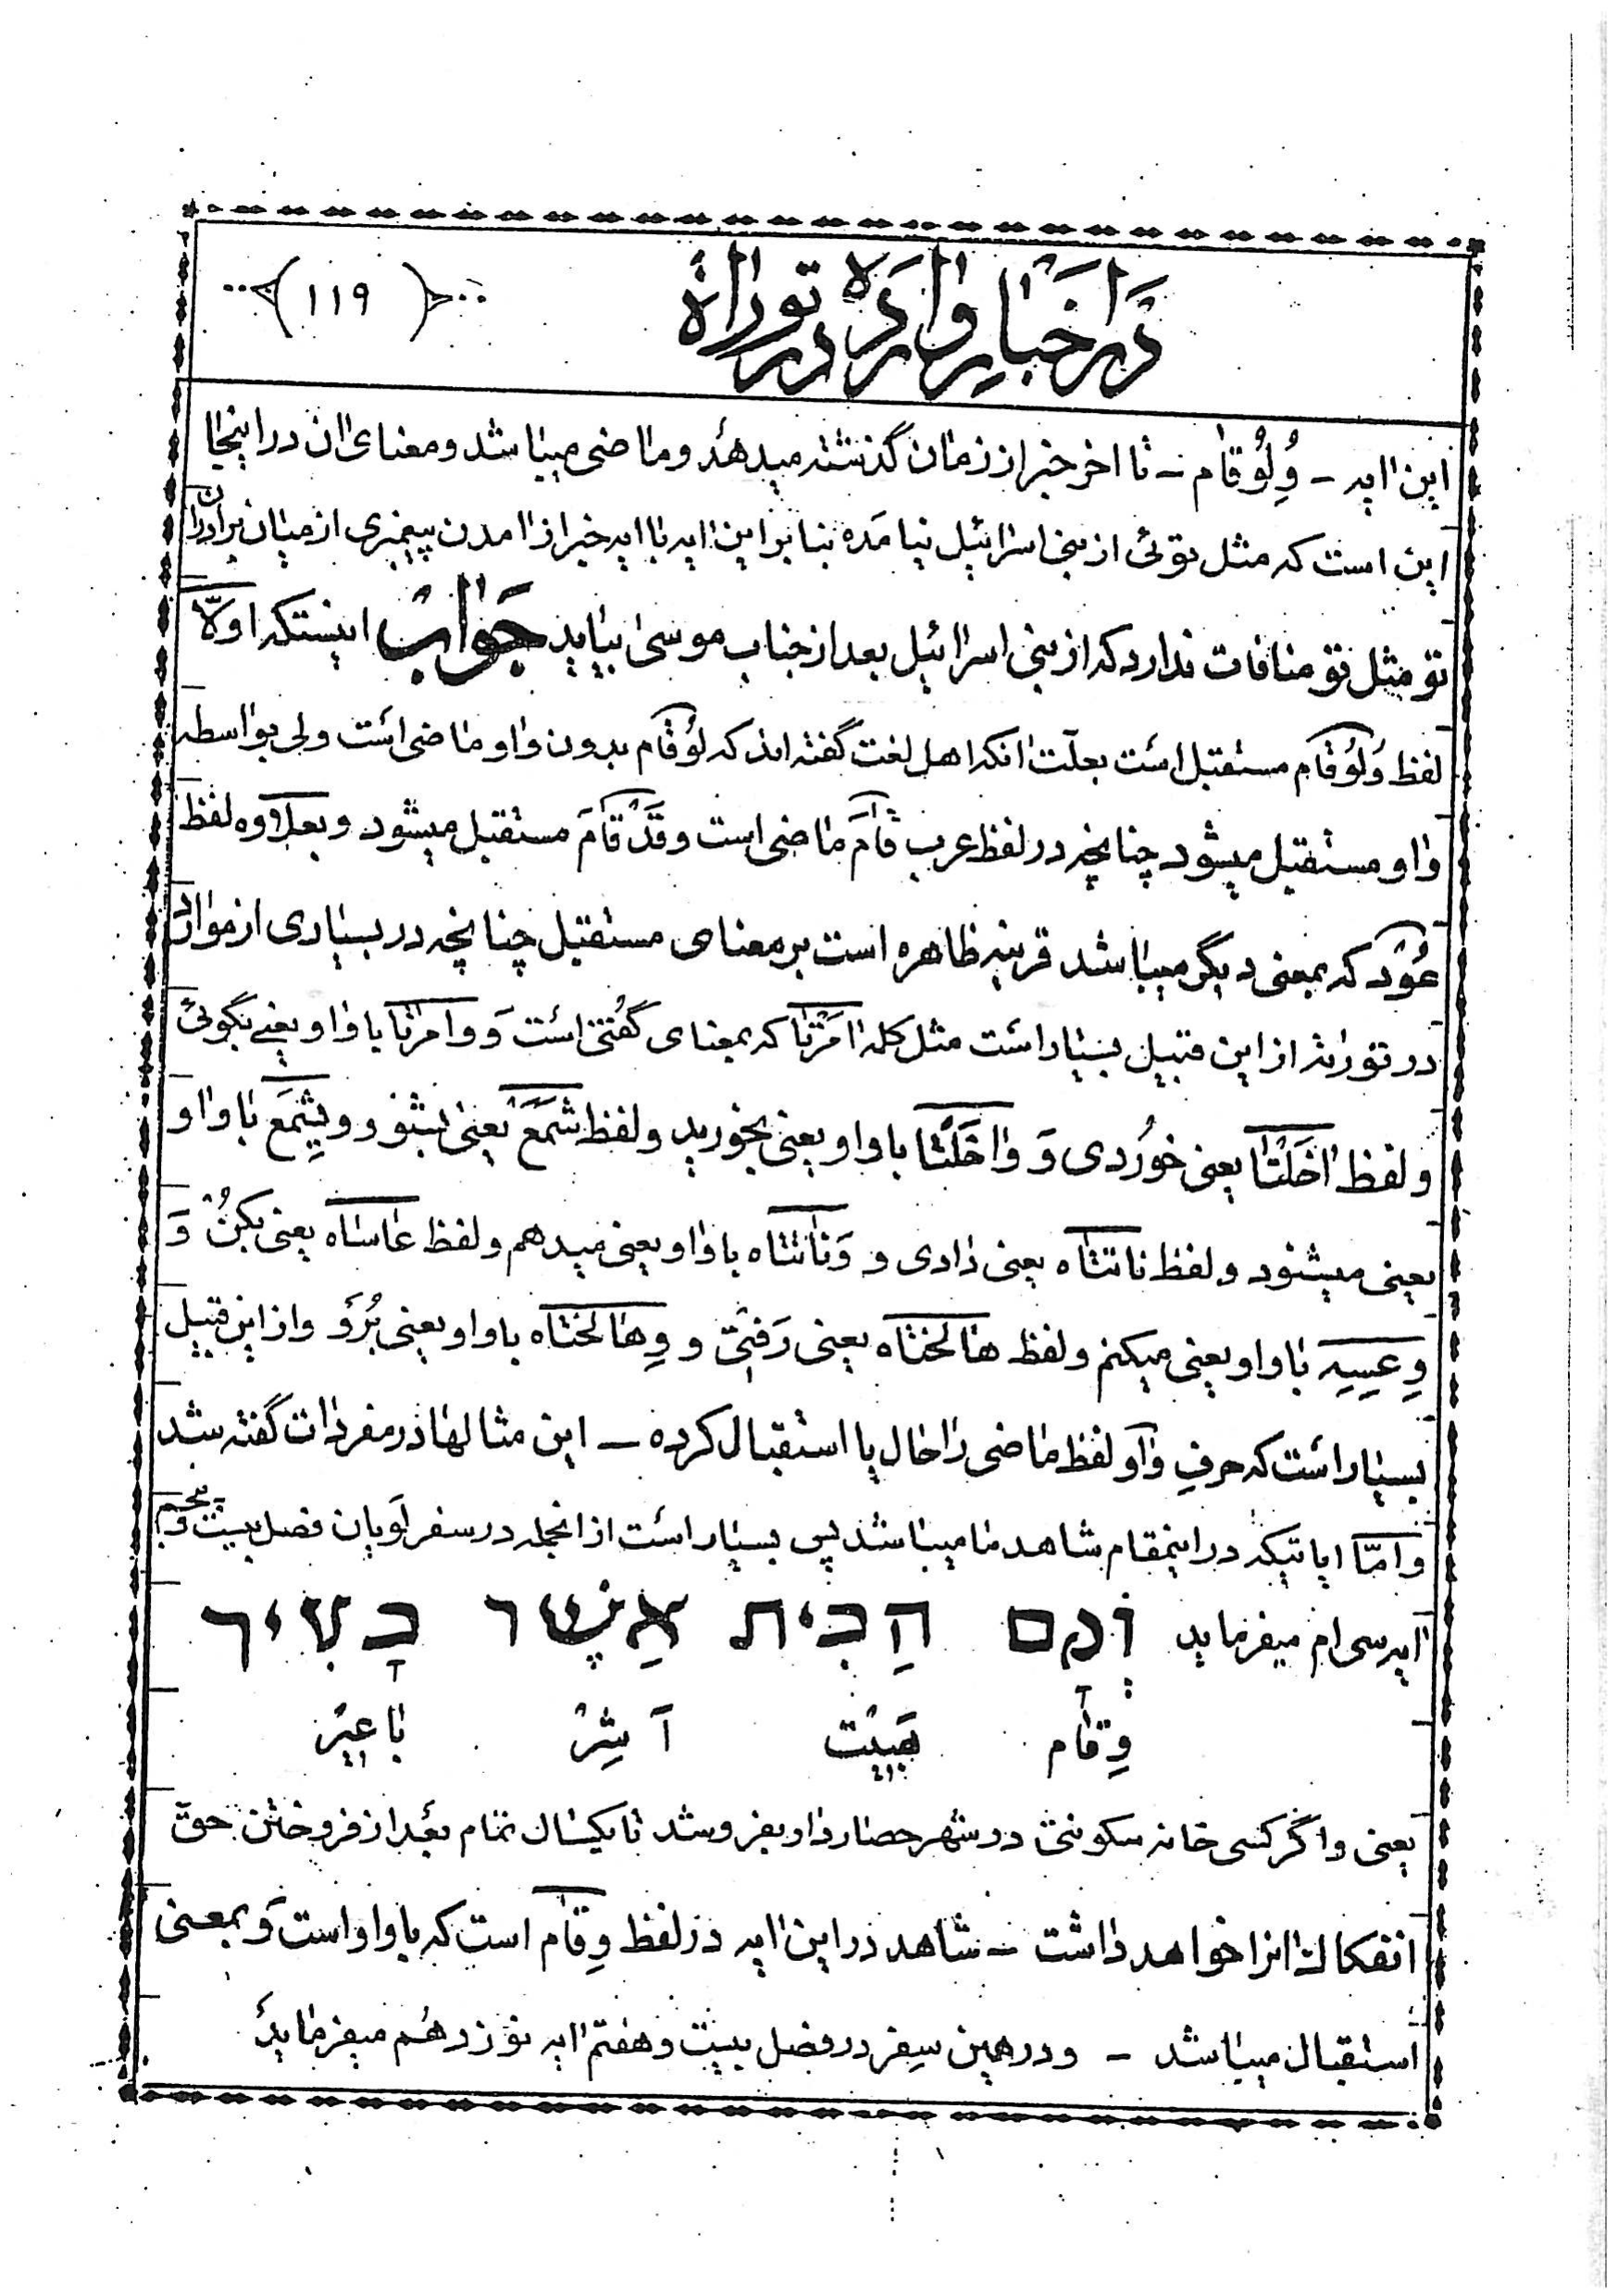 در اخبار وارده در توراة
(۱۱۹)
این ایه – وِلُوُقام – تا اخر خبر از زمان گذشته میدهد و ماضی میباشد و معنای ان در اینجا
این است که مثل توئی از بنی اسرائیل نیامده بنابراین ایه با ایه خبر از امدن پیغمبری از میان برادران
تو مثل تو منافات ندارد که از بنی اسرائیل بعد از جناب موسی بیاید جَواب اینستکه اولاً
لفظ وُلُوُقام مستقبل است بعلّت انکه اهل لغت گفته‌اند که لُوُقام بدون واو ماضی است ولی بواسطه
واو مستقبل میشود چنانچه در لفظ عرب قامَ ماضی است و قَدْ قامَ مستقبل میشود و بعلاوه لفظ
عُوْد که بمعنی دیگر میباشد قرینه ظاهره است بر معنای مستقبل چنانچه در بسیاری از موارد
در تورات از این قبیل بسیار است مثل کلمه امَرْتا که بمعنای گفتن است وَ وامرتا با واو یعنی بگوئی
و لفظ اخَلْتا یعنی خوُردی وَ واخَلْتا با واو یعنی بخورید و لفظ شمَعْ یعنی بشنو و ویشِمَع با واو
یعنی میشنود و لفظ ناتتاه یعنی دادی و وَناتتاه با واو یعنی میدهم و لفظ عاساه یعنی بکنْ وَ
وِعِسِه با واو یعنی میکنم و لفظ هالختاه یعنی رَفتی و وِهالختاه با واو یعنی بُرؤ و از این قبیل
بسیار است که حرفِ واو لفظ ماضی را حال یا استقبال کرده – این مثالها در مفردات گفته شد
و امّا ایاتیکه در اینمقام شاهد ما میباشد پس بسیار است از انجمله در سفر لَویان فصل بیست و پنجم
ایه سی‌ام میفرماید וְקָם הַבַּיִת אֲשֶׁר בָּעִיר
وِقام هَبَیْت آشِرْ باعیرْ
یعنی و اگر کسی خانه سکونتی در شهر حصاردار بفروشد تا یکسال تمام بعد از فروختن حق
انفکاک انرا خواهد داشت – شاهد در این ایه در لفظ وِقام است که با واو است وَ بمعنی
استقبال میباشد – و در همین سِفر در فصل بیست و هفتم ایه نوزدهم میفرماید